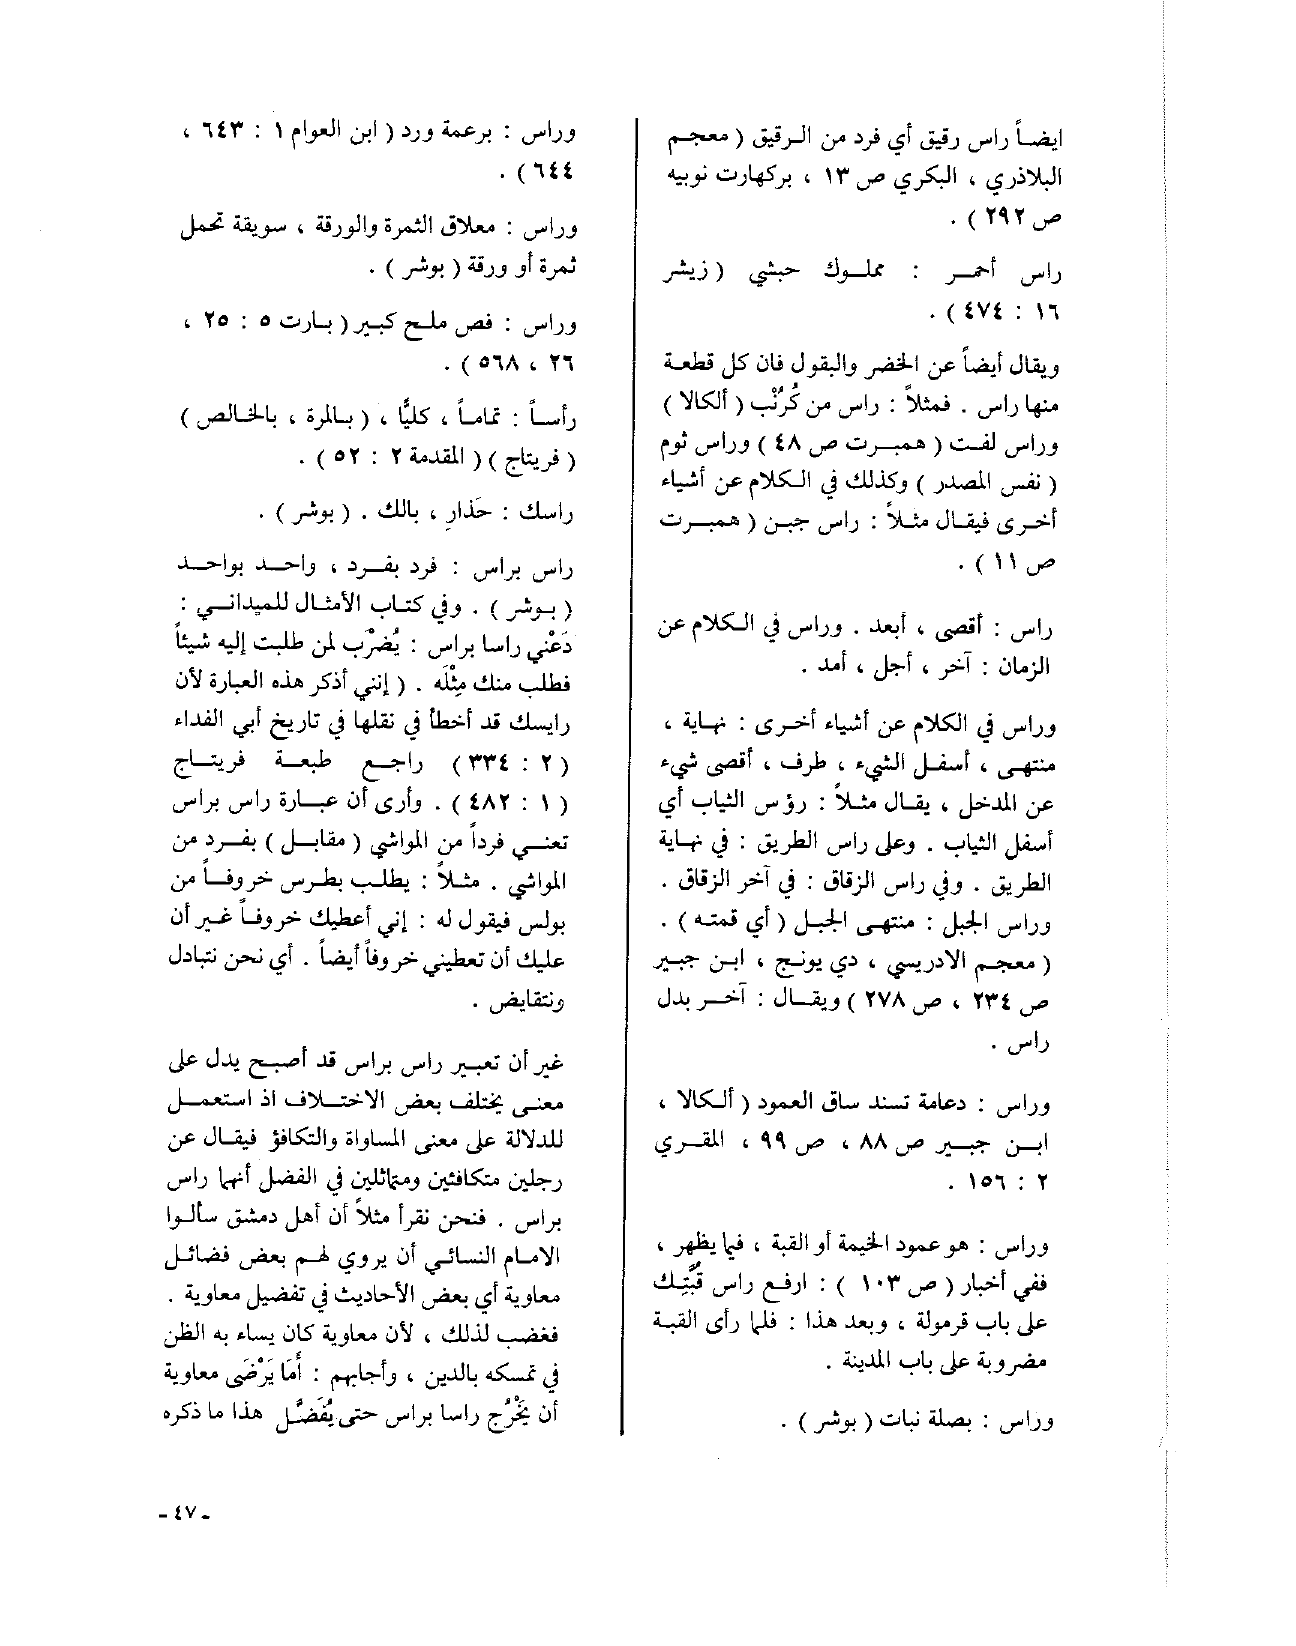 ايضاً راس رقيق أي فرد من الرقيق ( معجم
البلاذري ، البكري ص ١٣ ، بركهارت نوبيه
ص ٢٩٢ ) .
راس أحمر : مملوك حبشي ( زيشر
١٦ : ٤٧٤ ) .
ويقال أيضاً عن الخضر والبقول فان كل قطعة
منها راس . فمثلاً : راس من كُرُنْب ( ألكالا )
وراس لفت ( همبرت ص ٤٨ ) وراس ثوم
( نفس المصدر ) وكذلك في الكلام عن أشياء
أخرى فيقال مثلاً : راس جبن ( همبرت
ص ١١ ) .
راس : أقصى ، أبعد . وراس في الكلام عن
الزمان : آخر ، أجل ، أمد .
وراس في الكلام عن أشياء أخرى : نهاية ،
منتهى ، أسفل الشيء ، طرف ، أقصى شيء
عن المدخل ، يقال مثلاً : رؤس الثياب أي
أسفل الثياب . وعلى راس الطريق : في نهاية
الطريق . وفي راس الزقاق : في آخر الزقاق .
وراس الجبل : منتهى الجبل ( أي قمته ) .
( معجم الادريسي ، دي يونج ، ابن جبير
ص ٢٣٤ ، ص ٢٧٨ ) ويقال : آخر بدل
راس .
وراس : دعامة تسند ساق العمود ( ألكالا ،
ابن جبير ص ٨٨ ، ص ٩٩ ، المقري
٢ : ١٥٦ .
وراس : هو عمود الخيمة أو القبة ، فيما يظهر ،
ففي أخبار ( ص ١٠٣ ) : ارفع راس قُبَّتِك
على باب قرمولة ، وبعد هذا : فلما رأى القبة
مضروبة على باب المدينة .
وراس : بصلة نبات ( بوشر ) .
وراس : برعمة ورد ( ابن العوام ١ : ٦٤٣ ،
٦٤٤ ) .
وراس : معلاق الثمرة والورقة ، سويقة تحمل
ثمرة أو ورقة ( بوشر ) .
وراس : فص ملح كبير ( بارت ٥ : ٢٥ ،
٢٦ ، ٥٦٨ ) .
رأساً : تماماً ، كليًّا ، ( بالمرة ، بالخالص )
( فريتاج ) ( المقدمة ٢ : ٥٢ ) .
راسك : حَذارِ ، بالك . ( بوشر ) .
راس براس : فرد بفرد ، واحد بواحد
( بوشر ) . وفي كتاب الأمثال للميداني :
دَعْني راسا براس : يُضرَب لمن طلبت إليه شيئاً
فطلب منك مِثْلَه . ( إنني أذكر هذه العبارة لأن
رايسك قد أخطأ في نقلها في تاريخ أبي الفداء
( ٢ : ٣٣٤ ) راجع طبعة فريتاج
( ١ : ٤٨٢ ) . وأرى أن عبارة راس براس
تعني فرداً من المواشي ( مقابل ) بفرد من
المواشي . مثلاً : يطلب بطرس خروفاً من
بولس فيقول له : إني أعطيك خروفاً غير أن
عليك أن تعطيني خروفاً أيضاً . أي نحن نتبادل
ونتقايض .
غير أن تعبير راس براس قد أصبح يدل على
معنى يختلف بعض الاختلاف اذ استعمل
للدلالة على معنى المساواة والتكافؤ فيقال عن
رجلين متكافئين ومتماثلين في الفضل أنهما راس
براس . فنحن نقرأ مثلاً أن أهل دمشق سألوا
الامام النسائي أن يروي لهم بعض فضائل
معاوية أي بعض الأحاديث في تفضيل معاوية .
فغضب لذلك ، لأن معاوية كان يساء به الظن
في تمسكه بالدين ، وأجابهم : أَمَا يَرْضَى معاوية
أن يَخْرُج راسا براس حتى يُفَضَّل هذا ما ذكره
ـ ٤٧ ـ